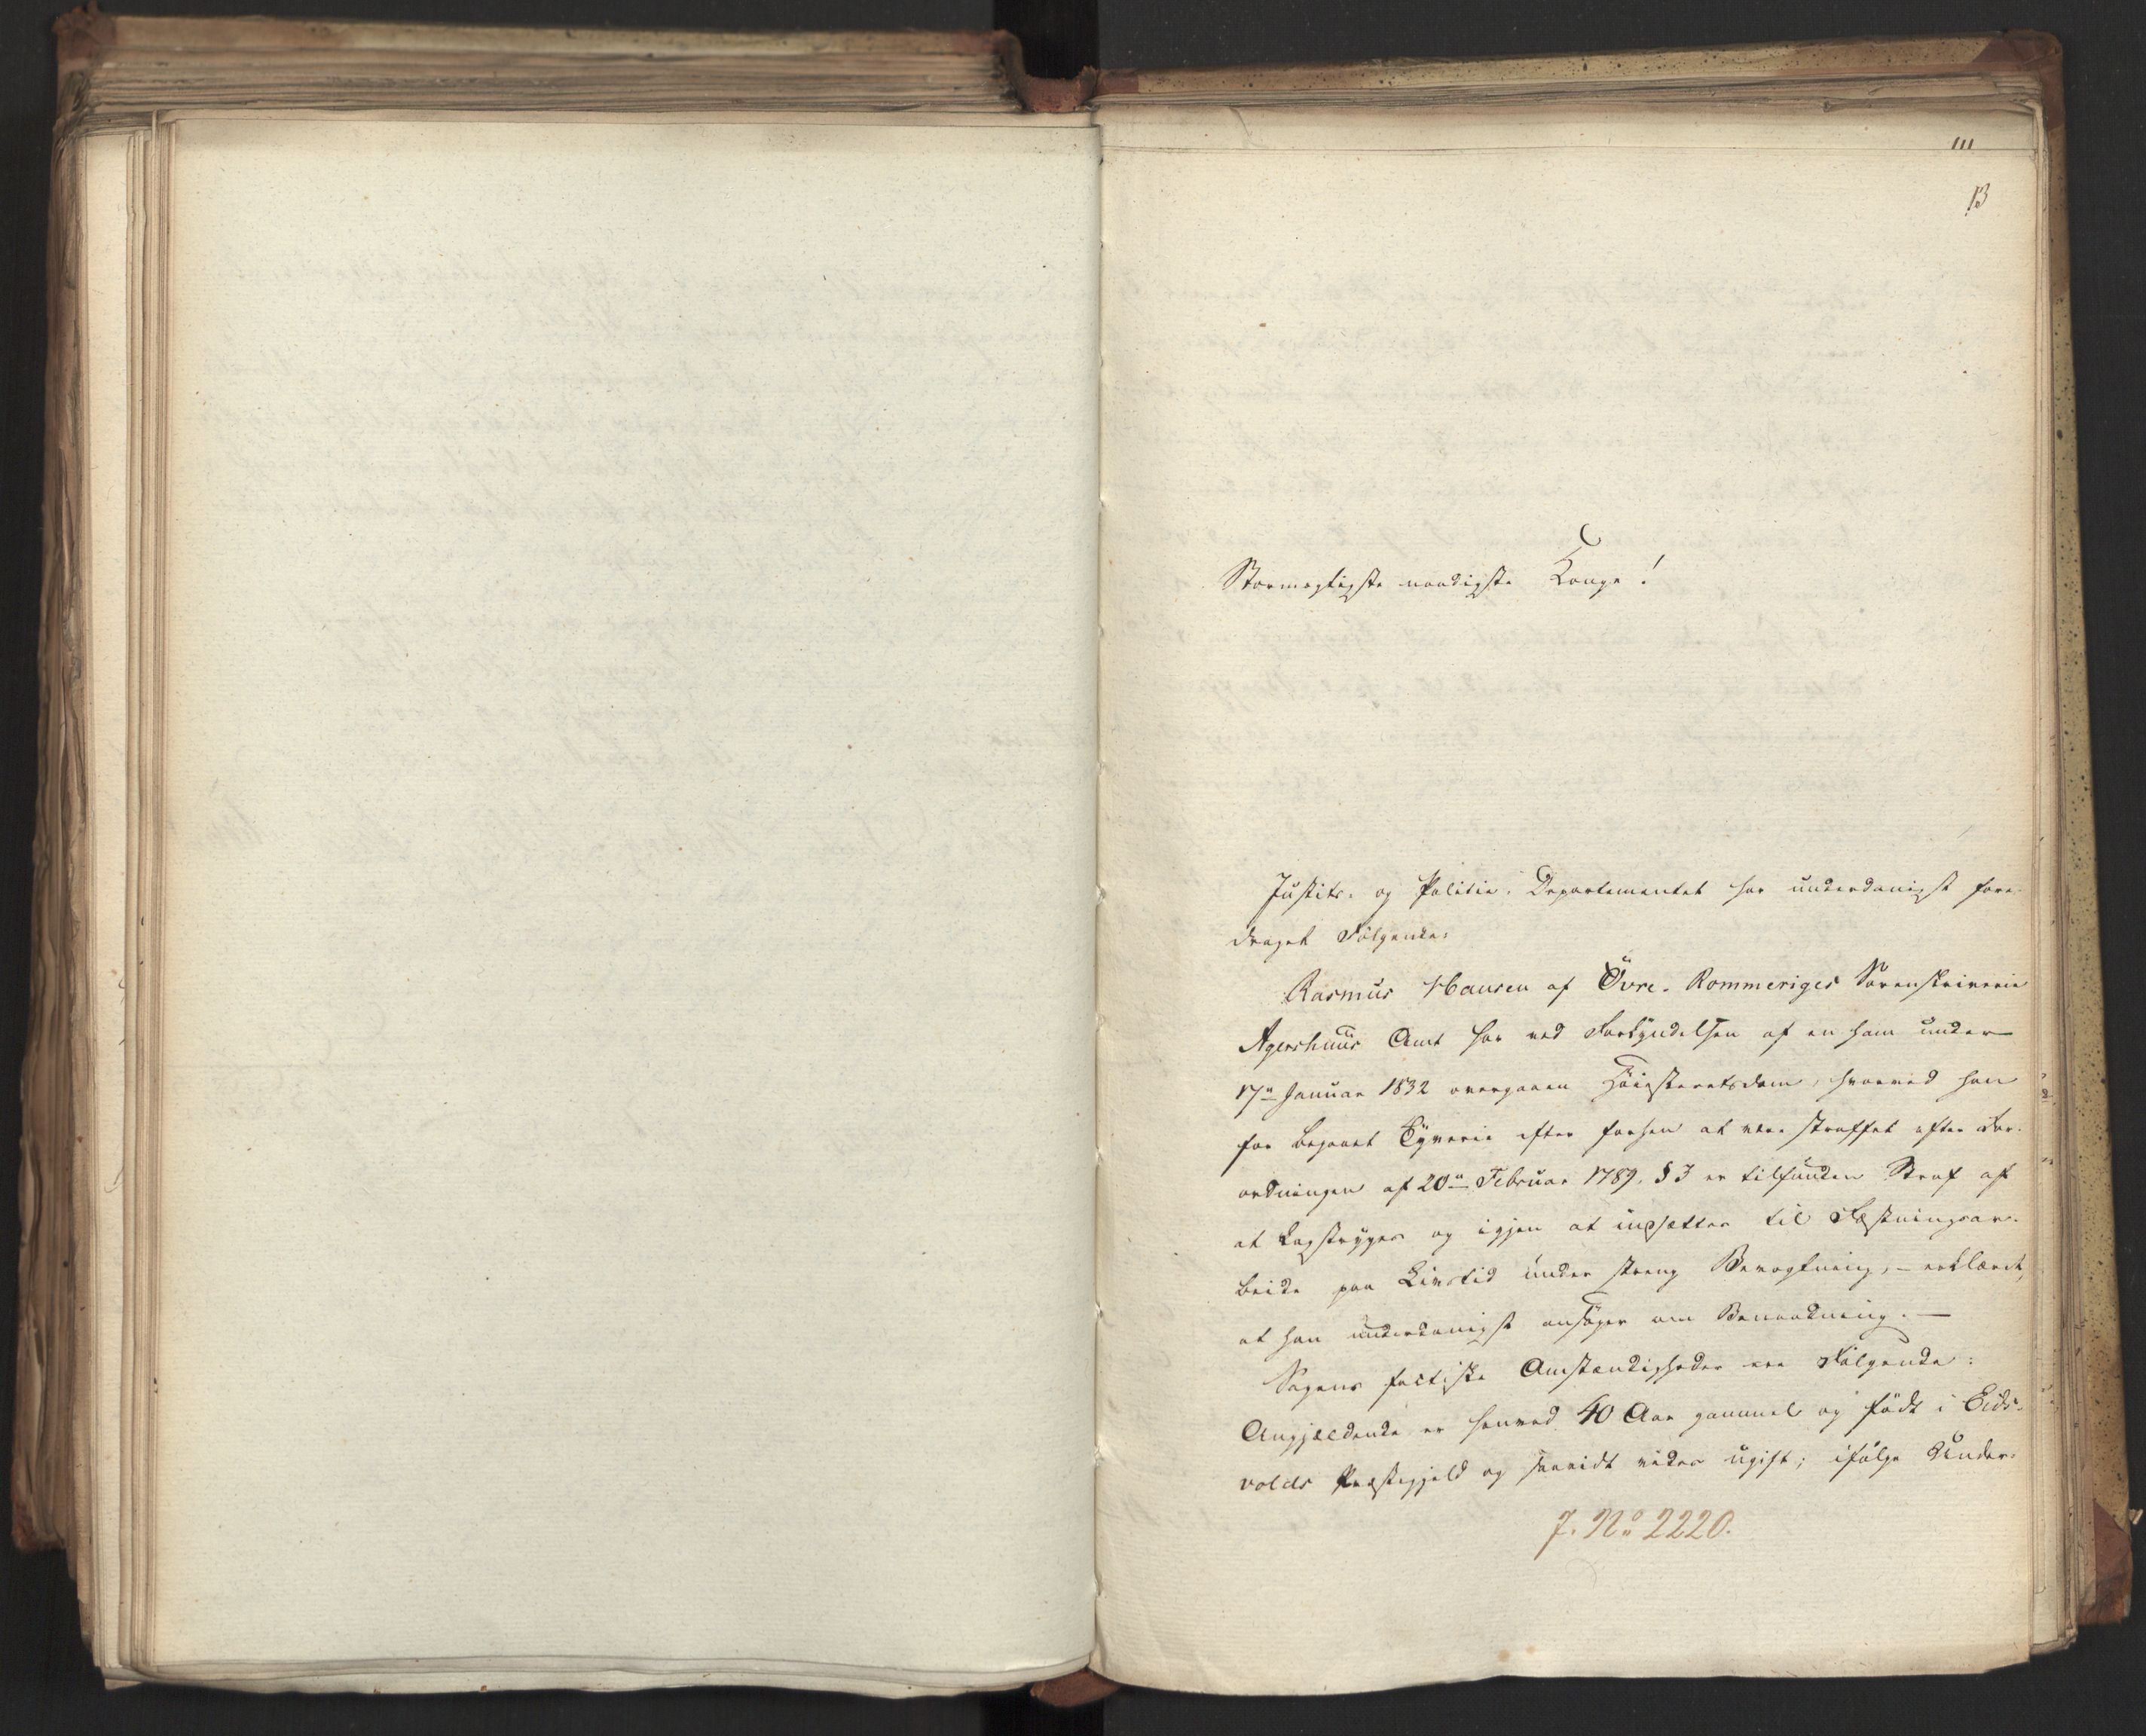 111
13
Stormægtigste naadigste Konge!
Justits- og Politie-Departementet har underdanigst fore-
draget Følgende:
Rasmus Hansen af Övre-Rommeriges Sorenskriverie
Agershuus Amt har ved Forkyndelsen af en ham under
17de Januar 1832 overgaaen Høiesteretsdom, hvorved han
for begaaet Tyverie efter forhen at være straffet efter For-
ordningen af 20de Februar 1789. § 3 er tilfunden Straf af
at kagstryges og igjen at indsættes til Fæstningsar-
beide paa Livstid under streng Bevogtning, - erklæret,
at han underdanigst ansøger om Benaadning. -
Sagens factiske Omstændigheder ere Følgende:
Angjældende er henved 40 Aar gammel og født i Eids-
volds Præstegjeld og saavidt vides ugift; ifølge Under-
J. No 2220.